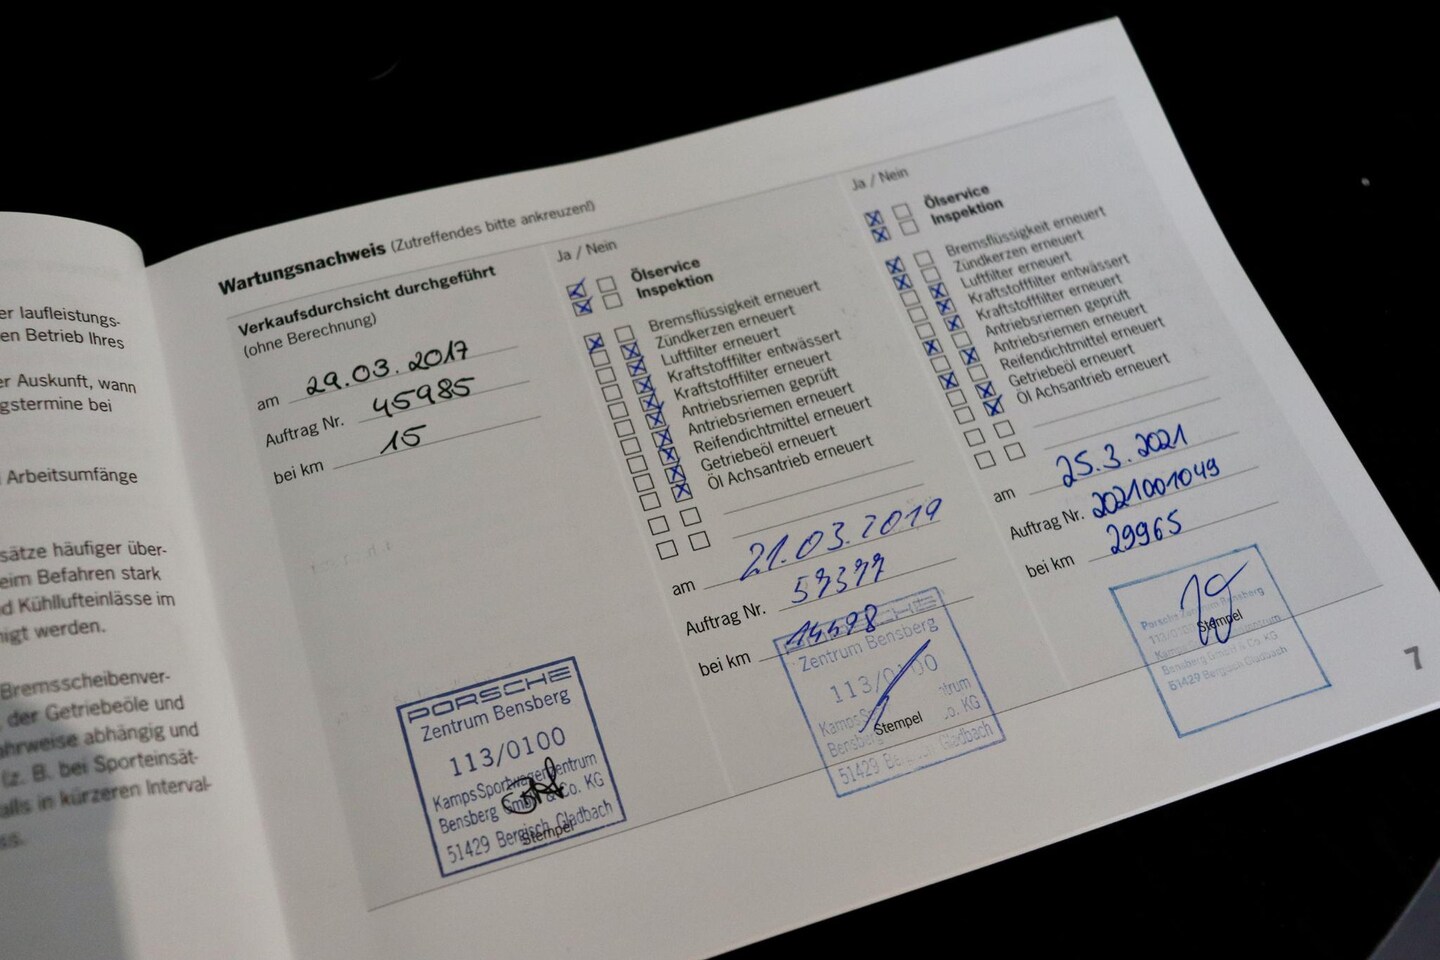 er laufleistungs-
en Betrieb Ihres
er Auskunft, wann
gstermine bei
Arbeitsumfänge
sätze häufiger über-
eim Befahren stark
d Kühllufteinlässe im
nigt werden.
Bremsscheibenver-
der Getriebeöle und
ahrweise abhängig und
(z. B. bei Sporteinsät-
alls in kürzeren Interval-
ss.
Wartungsnachweis (Zutreffendes bitte ankreuzen!)
Verkaufsdurchsicht durchgeführt
(ohne Berechnung)
am 29.03.2017
Auftrag Nr. 45985
bei km 15
PORSCHE
Zentrum Bensberg
113/0100
Kamps Sportwagenzentrum
Bensberg GmbH & Co. KG
51429 Bergisch Gladbach
Stempel
Ja / Nein
Ölservice
Inspektion
Bremsflüssigkeit erneuert
Zündkerzen erneuert
Luftfilter erneuert
Kraftstofffilter entwässert
Kraftstofffilter erneuert
Antriebsriemen geprüft
Antriebsriemen erneuert
Reifendichtmittel erneuert
Getriebeöl erneuert
Öl Achsantrieb erneuert
am 21.03.2019
Auftrag Nr.
bei km 14598
PORSCHE
Zentrum Bensberg
113/0100
Kamps
Bensberg Co. KG
51429 Gladbach
Stempel
Ja / Nein
Ölservice
Inspektion
Bremsflüssigkeit erneuert
Zündkerzen erneuert
Luftfilter erneuert
Kraftstofffilter entwässert
Kraftstofffilter erneuert
Antriebsriemen geprüft
Antriebsriemen erneuert
Reifendichtmittel erneuert
Getriebeöl erneuert
Öl Achsantrieb erneuert
am 25.3.2021
Auftrag Nr. 2021001049
bei km 29965
Porsche Zentrum Bensberg
Bensberg GmbH & Co. KG
51429 Bergisch Gladbach
Stempel
7